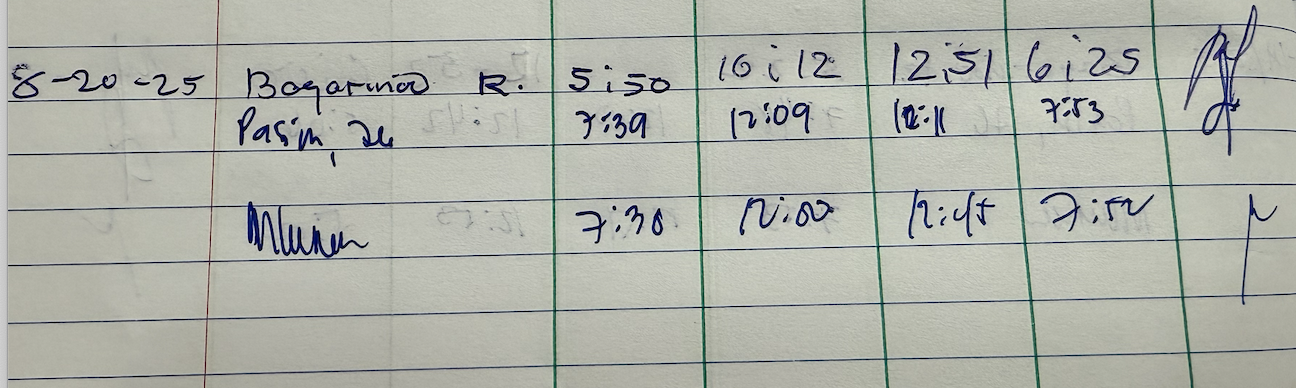 8-20-25 Bagarinao R. 5:50 10:12 12:51 6:25
7:39 12:09 12:11 7:53
7:30 12:00 12:45 7:52